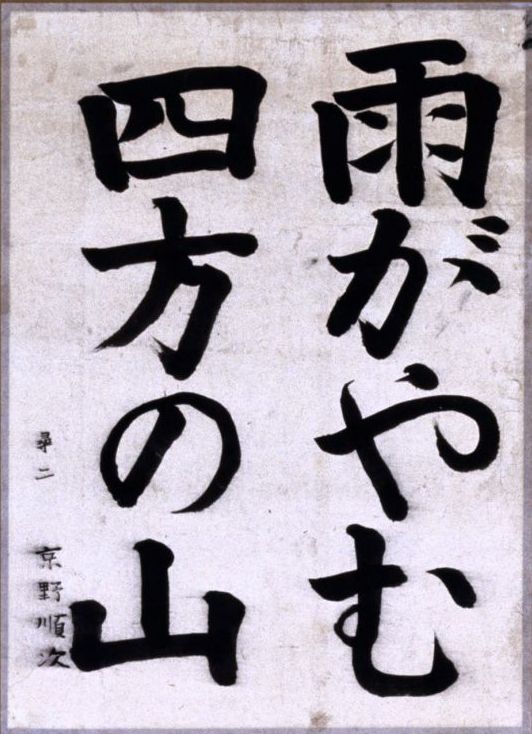 雨がやむ
四方の山
尋二 京野順次